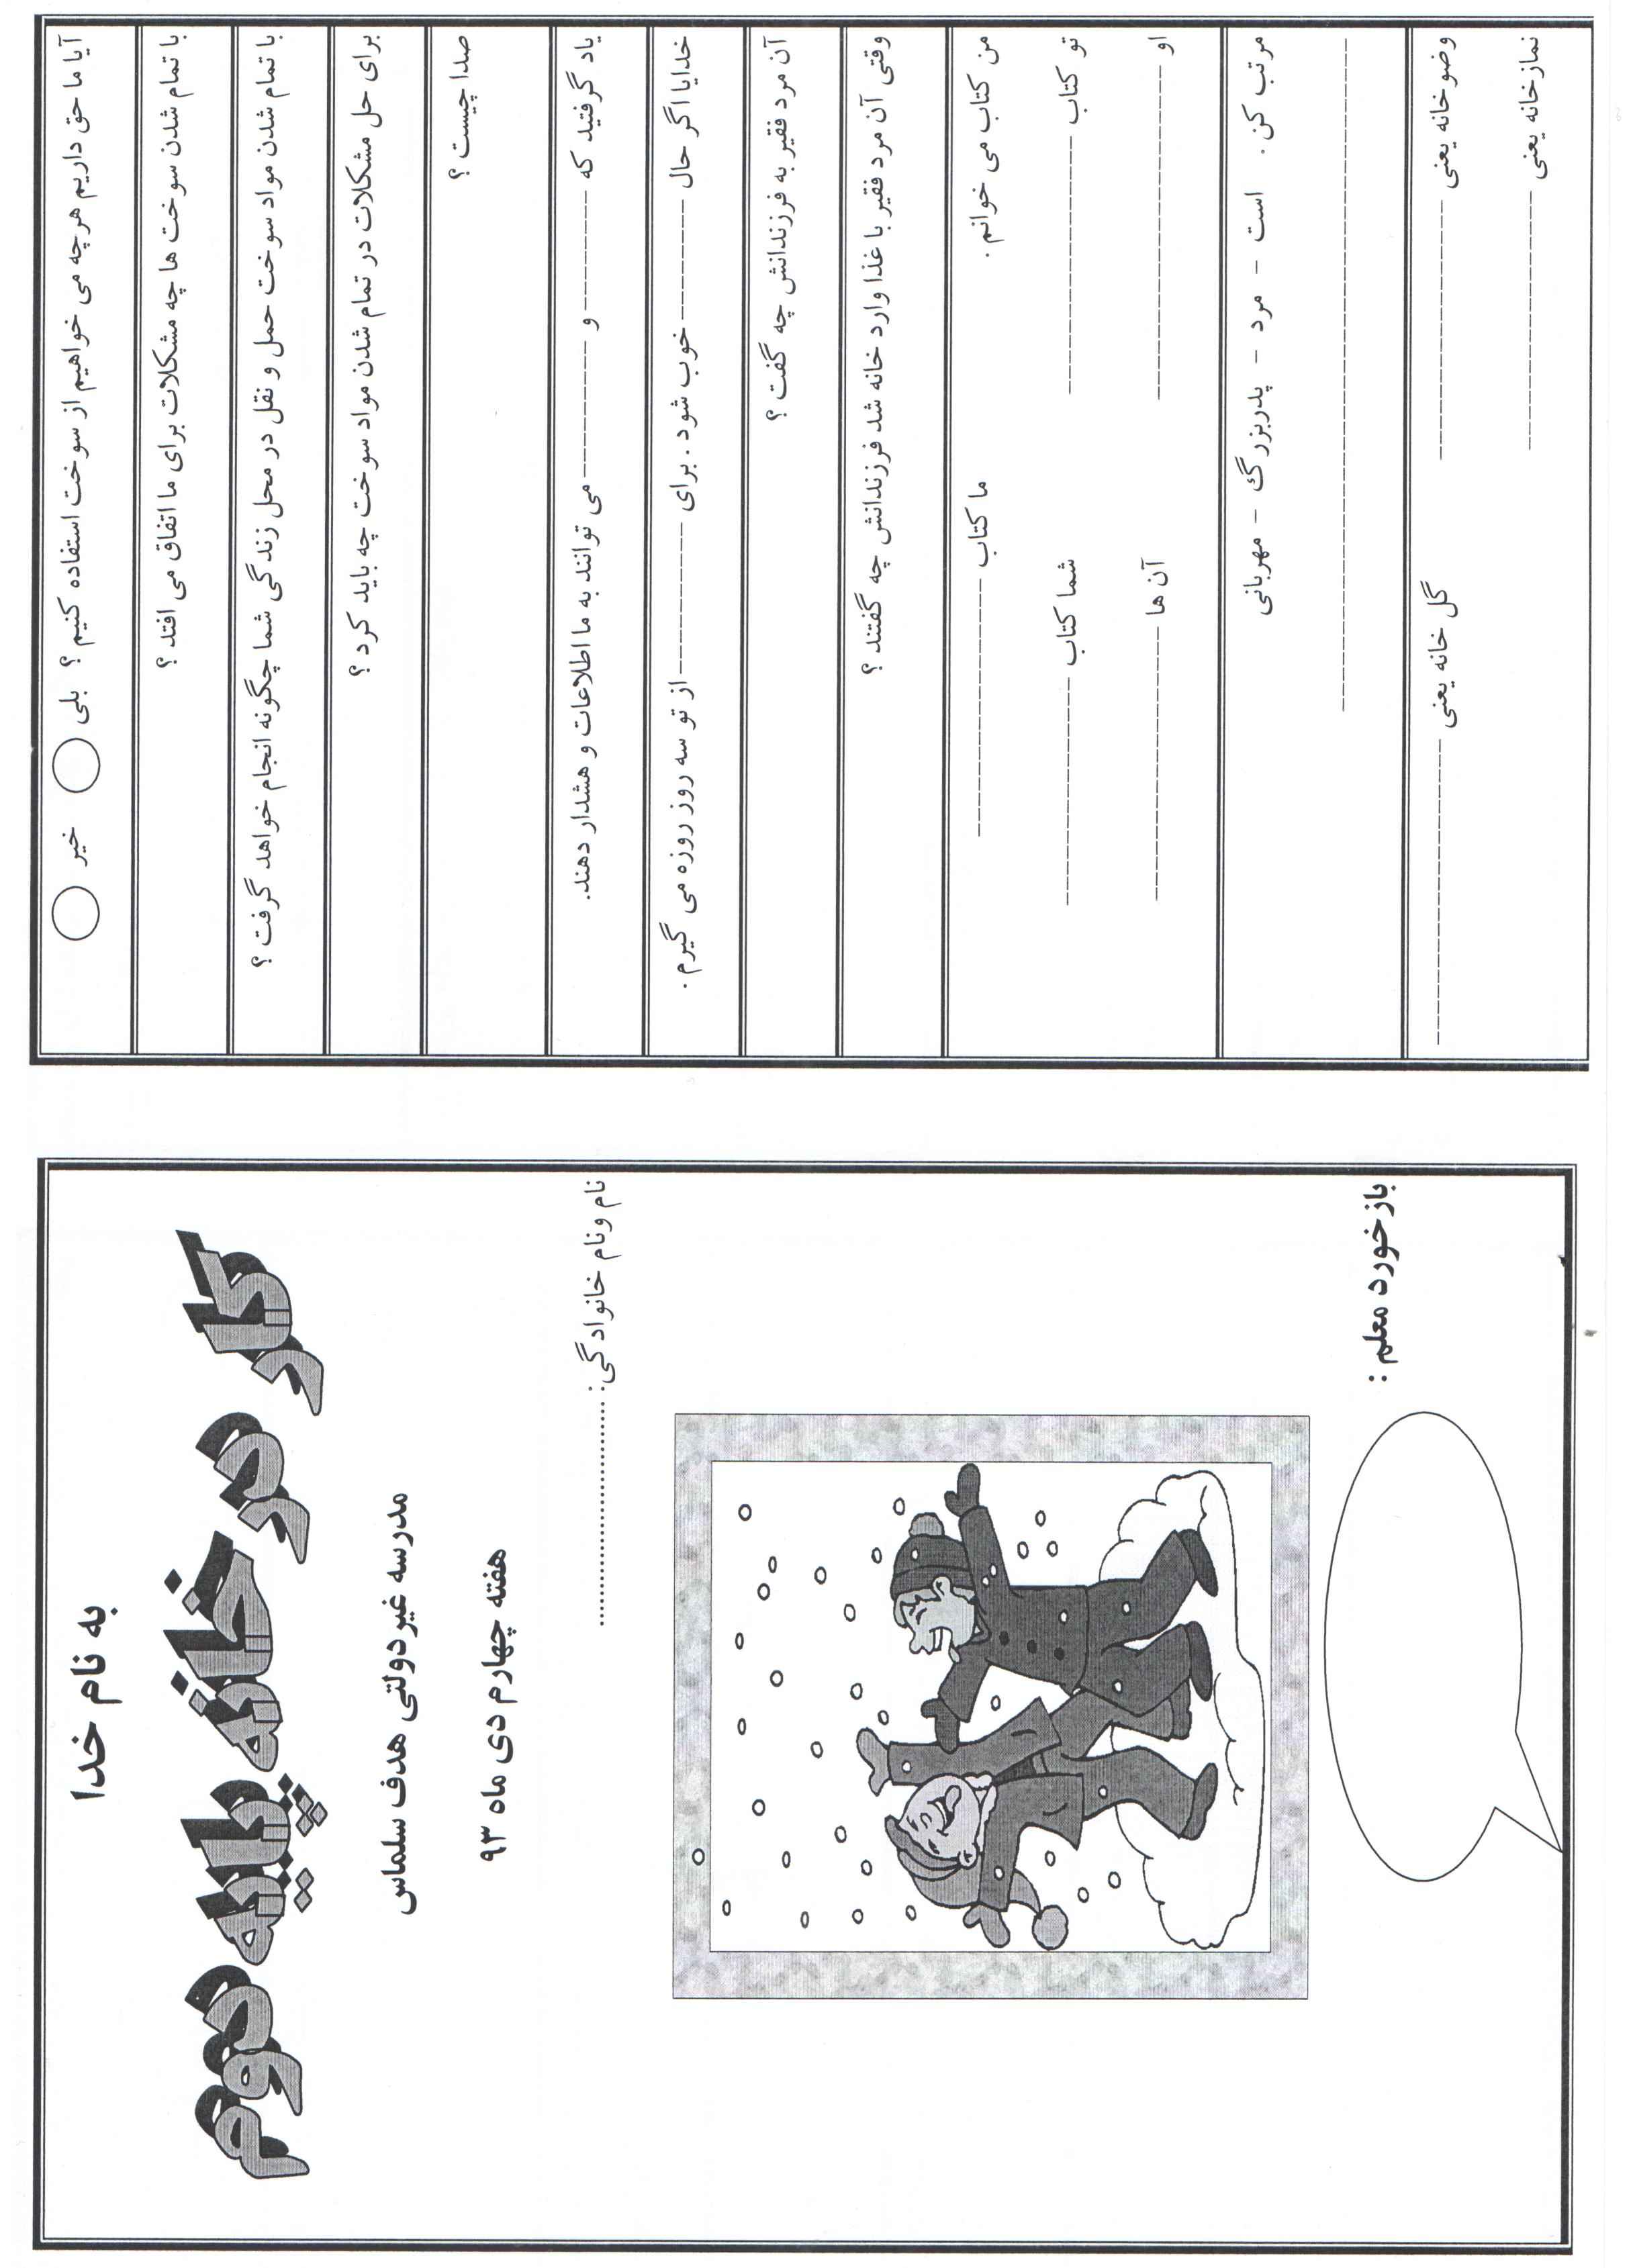 به نام خدا
کار در خانه پایه دوم
مدرسه غیردولتی هدف سلماس
هفته چهارم دی ماه ۹۳
نام ونام خانوادگی: ........................................
بازخورد معلم :
آیا ما حق داریم هرچه می خواهیم از سوخت استفاده کنیم ؟ بلی خیر
با تمام شدن سوخت ها چه مشکلات برای ما اتفاق می افتد ؟
با تمام شدن مواد سوخت حمل و نقل در محل زندگی شما چگونه انجام خواهد گرفت ؟
برای حل مشکلات در تمام شدن مواد سوخت چه باید کرد ؟
صدا چیست ؟
یاد گرفتید که ------------ و ------------ می توانند به ما اطلاعات و هشدار دهند.
خدایا اگر حال ------------ خوب شود . برای ------------ از تو سه روز روزه می گیرم .
آن مرد فقیر به فرزندانش چه گفت ؟
وقتی آن مرد فقیر با غذا وارد خانه شد فرزندانش چه گفتند ؟
من کتاب می خوانم . ما کتاب ------------------------
تو کتاب ------------------------ شما کتاب ------------------------
او ------------------------ آن ها ------------------------
مرتب کن . است – مرد – پدربزرگ – مهربانی
------------------------------------------------
وضوخانه یعنی ------------------------ گل خانه یعنی ------------------------
نمازخانه یعنی ------------------------